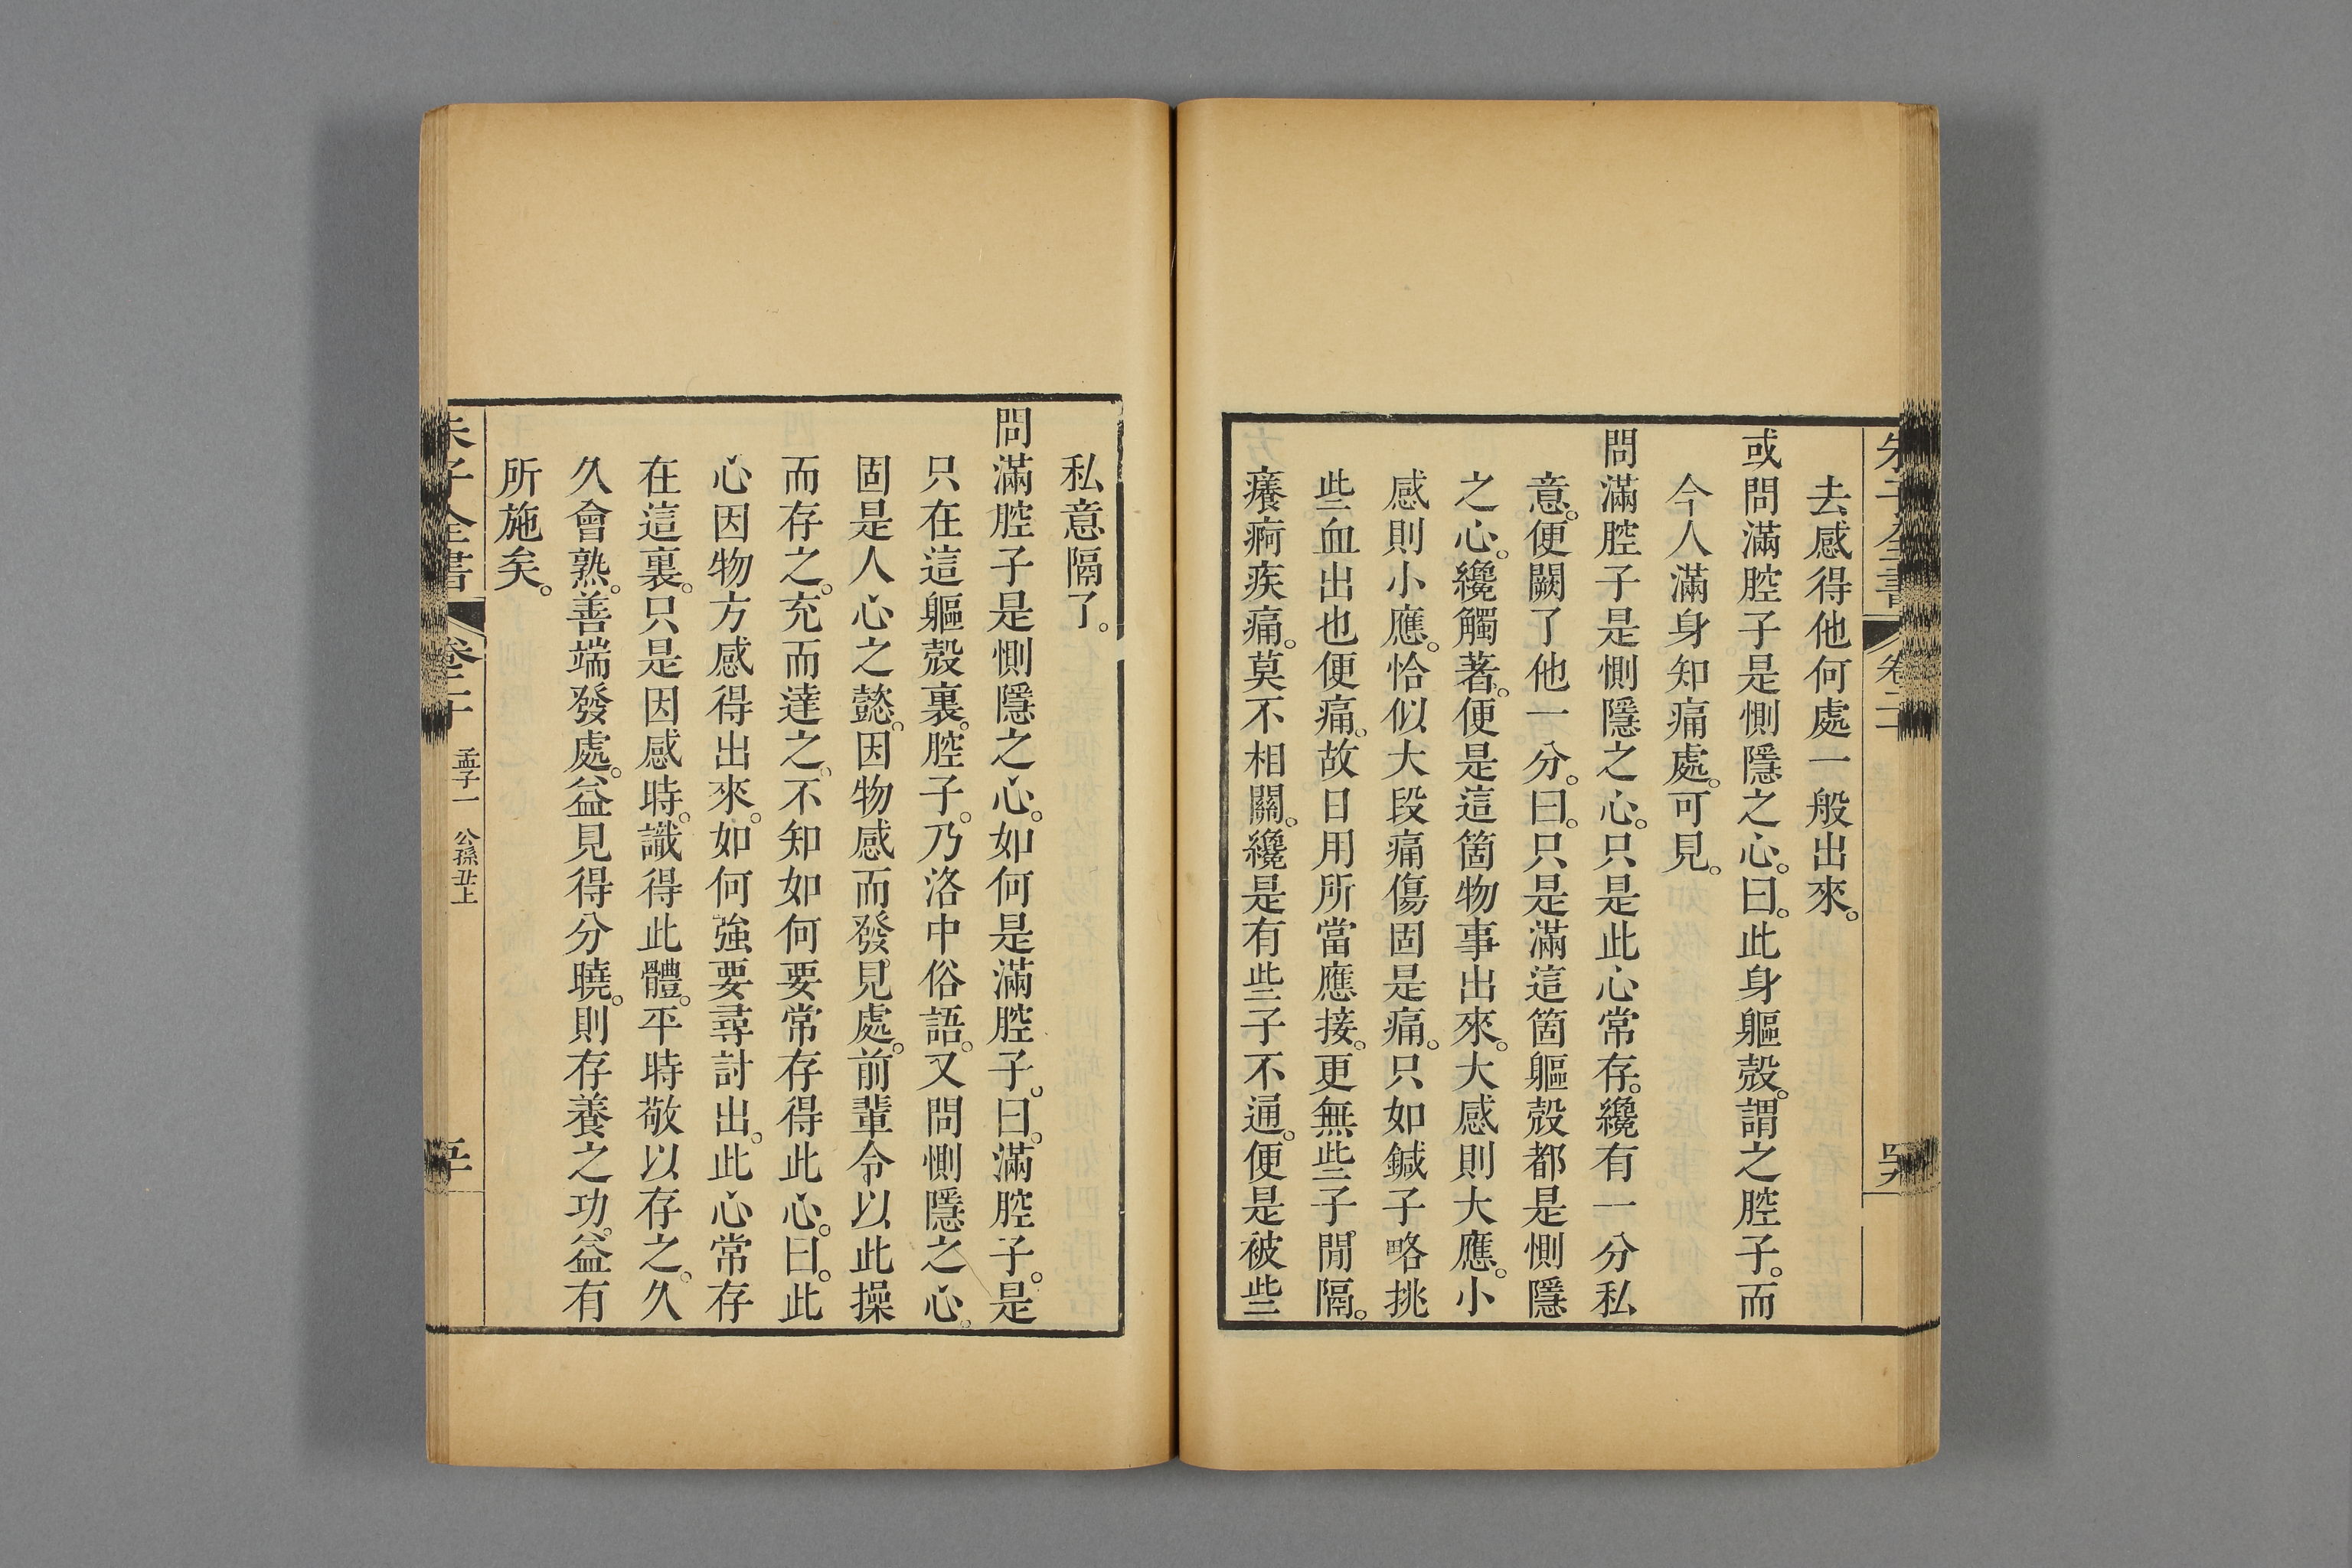 朱子全書 卷二十
去感得他何處一般出來。
或問滿腔子是惻隱之心。曰。此身軀殼。謂之腔子。而
今人滿身知痛處。可見。
問滿腔子是惻隱之心。只是此心常存。纔有一分私
意。便闕了他一分。曰。只是滿這箇軀殼都是惻隱
之心。纔觸著。便是這箇物事出來。大感則大應。小
感則小應。恰似大段痛傷固是痛。只如鍼子略挑
些血出也便痛。故日用所當應接。更無些子閒隔。
癢痾疾痛。莫不相關。纔是有些子不通。便是被些
私意隔了。
問滿腔子是惻隱之心。如何是滿腔子。曰。滿腔子。是
只在這軀殼裏。腔子。乃洛中俗語。又問惻隱之心。
固是人心之懿。因物感而發見處。前輩令以此操
而存之。充而達之。不知如何要常存得此心。曰。此
心因物方感得出來。如何強要尋討出。此心常存
在這裏。只是因感時。識得此體。平時敬以存之。久
久會熟。善端發處。益見得分曉。則存養之功。益有
所施矣。
朱子全書 卷二十 孟子一 公孫丑上